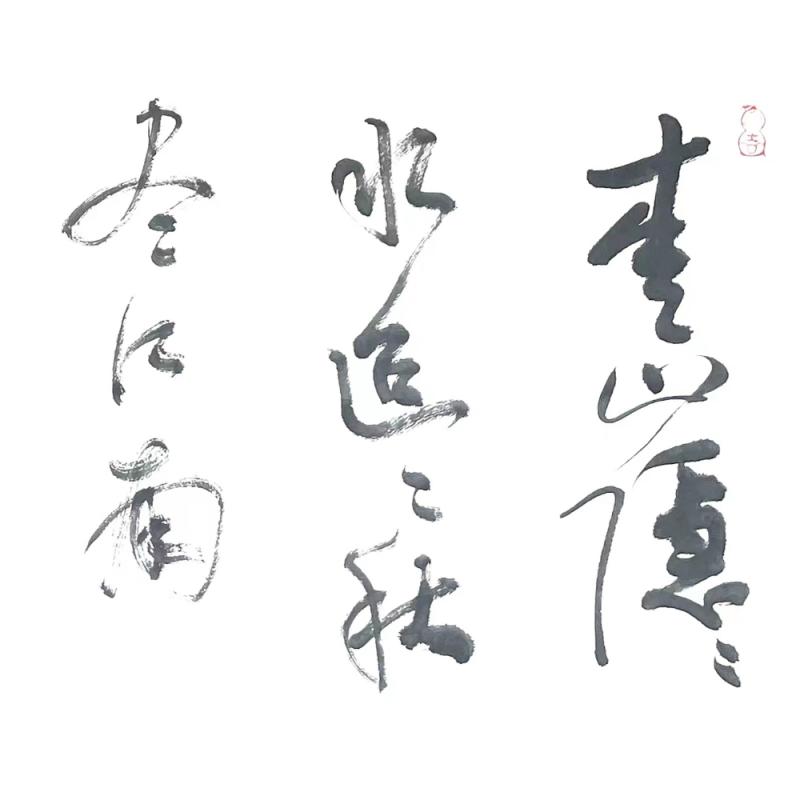 青山隐〻
水迢〻秋
尽江南